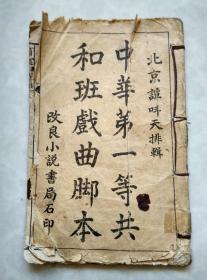 北京譚叫天排輯
中華第一等共
和班戲曲脚本
改良小說書局石印